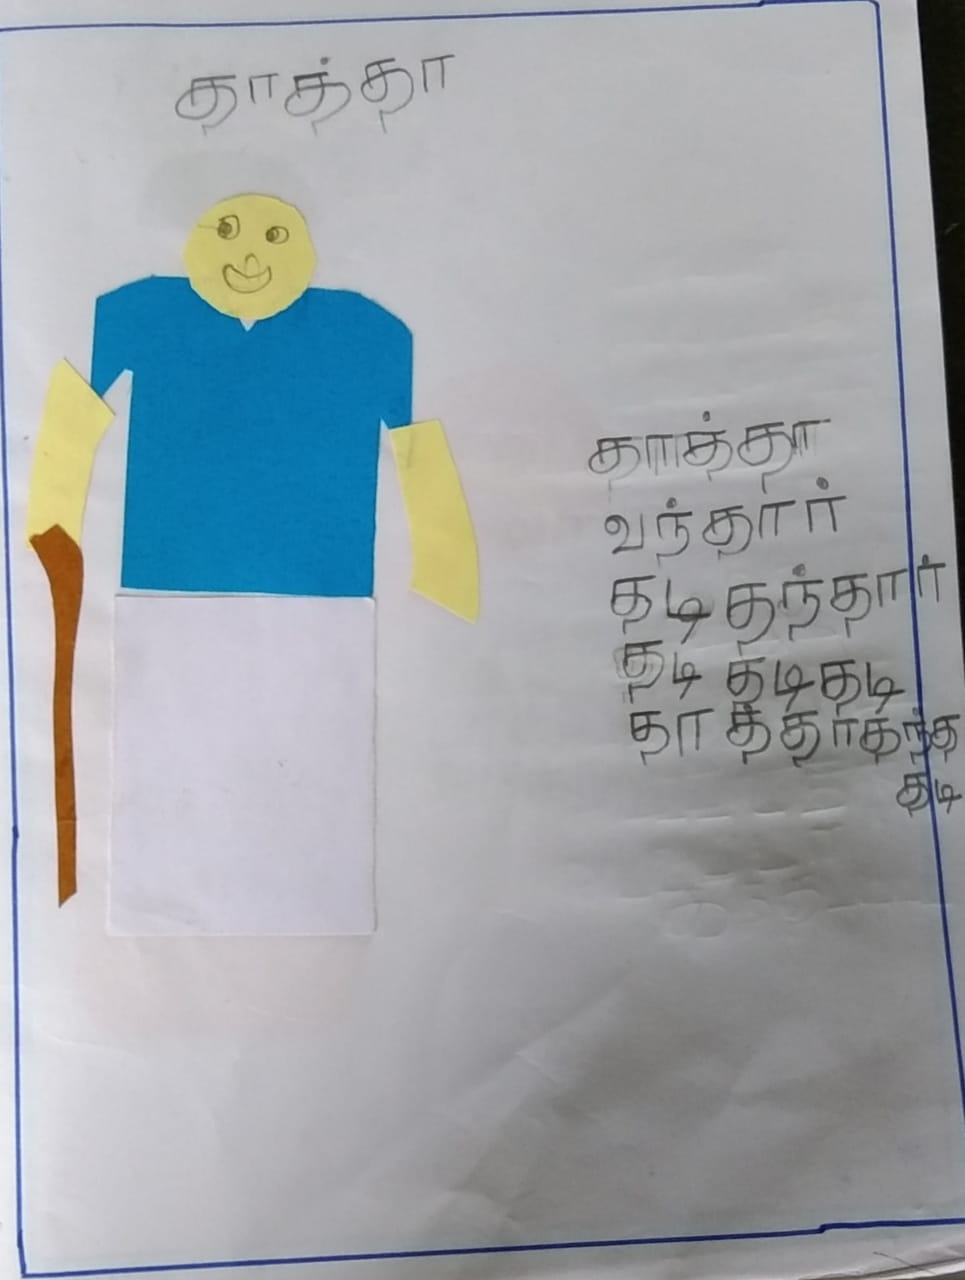 தாத்தா
தாத்தா
வந்தார்
தடி தந்தார்
தடி தடிதடி
தாத்தாதந்த
தடி